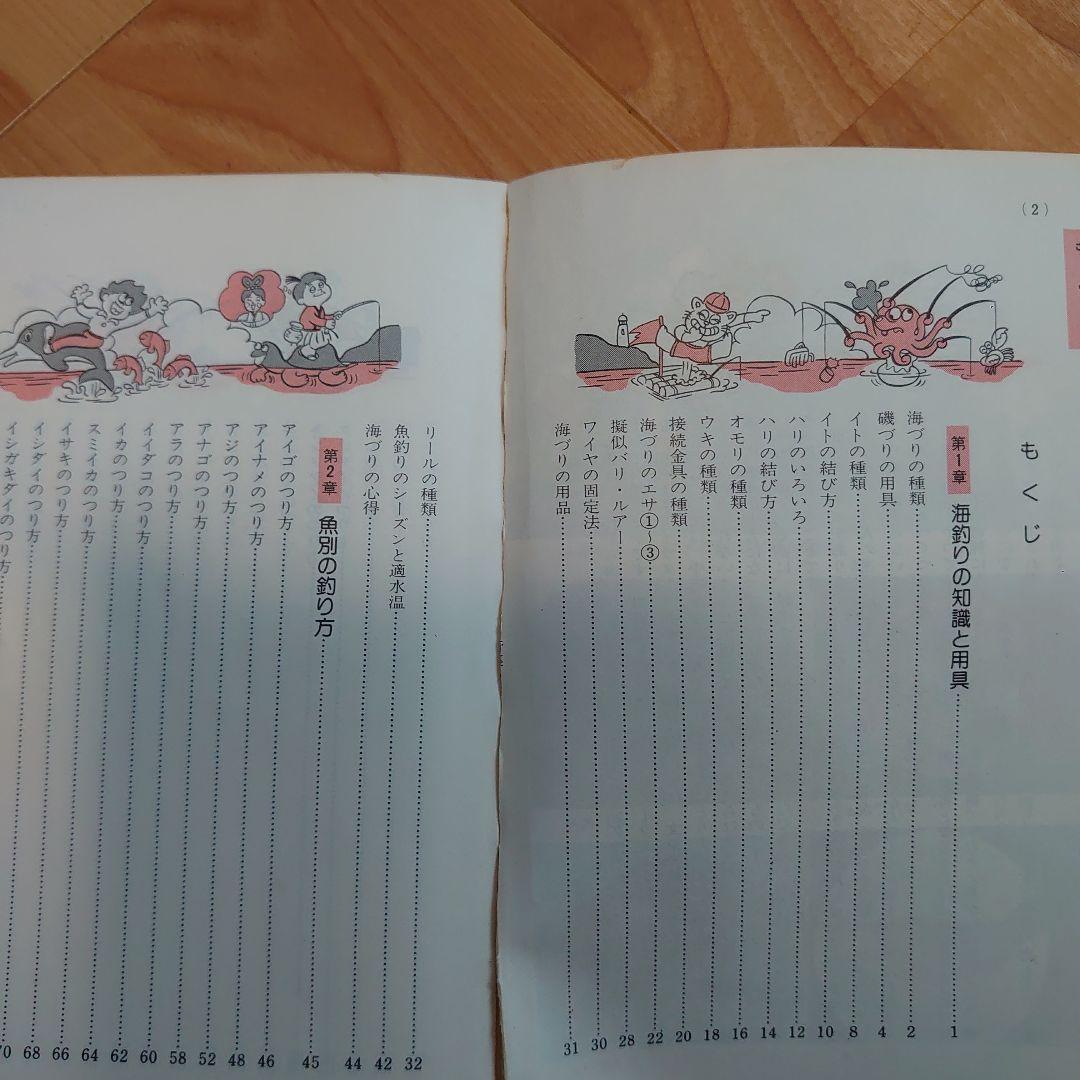 (2)
もくじ
第1章 海釣りの知識と用具……1
海づりの種類……2
磯づりの用具……4
イトの種類……8
イトの結び方……10
ハリのいろいろ……12
ハリの結び方……14
オモリの種類……16
ウキの種類……18
接続金具の種類……20
海づりのエサ①〜③……22
擬似バリ・ルアー……28
ワイヤの固定法……30
海づりの用品……31
リールの種類……32
魚釣りのシーズンと適水温……42
海づりの心得……44
第2章 魚別の釣り方……45
アイゴのつり方……46
アイナメのつり方……48
アジのつり方……52
アナゴのつり方……58
アラのつり方……60
イイダコのつり方……62
イカのつり方……64
スミイカのつり方……66
イサキのつり方……68
イシダイのつり方……70
イシガキダイのつり方